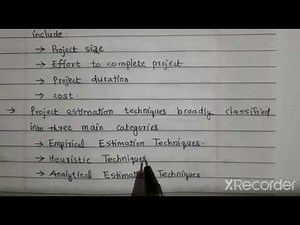 include
→ Project size
→ Effort to complete project
→ Project duration
→ cost.
→ Project estimation techniques broadly classified
into three main categories
→ Empirical Estimation Techniques.
→ Heuristic Techniques
→ Analytical Estimation Techniques
XRecorder